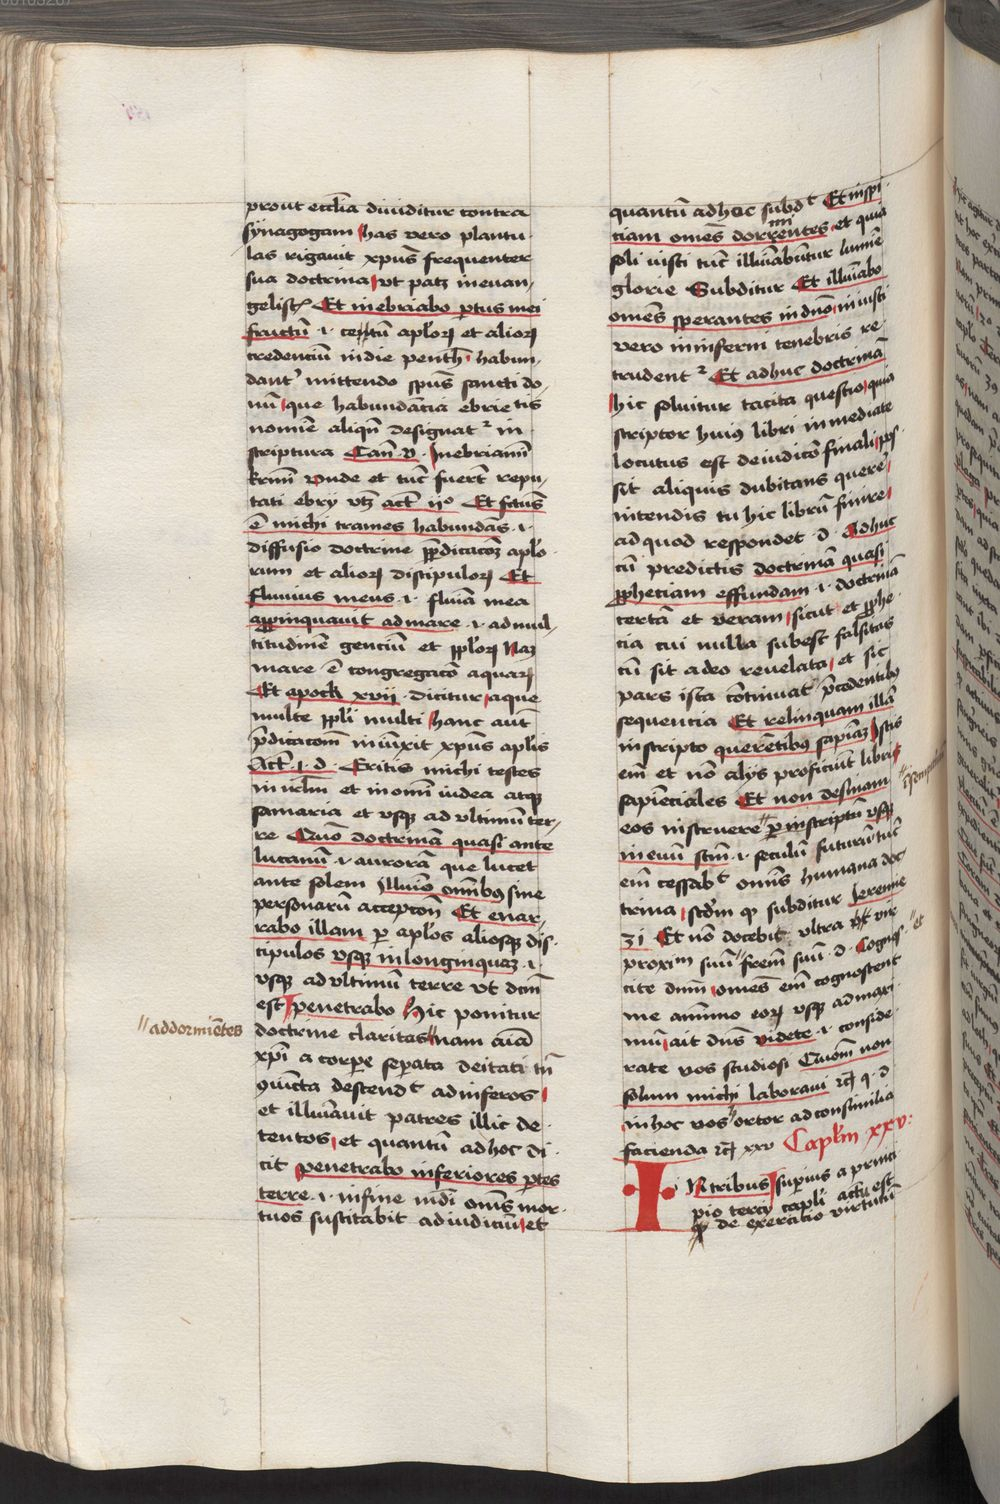 prout ecclīa diuiditur contra
synagogam has vero plantu-
las rigauit xpūs frequenter
sua doctrina vt patꝫ in euan-
gelistꝫ Et inebriabo ꝑtus mei
fructū .i. cetū aplōꝝ et alioꝝ
credenciū in die pentħ habun-
dantʾ mittendo spūs sancti do-
nū que habundācia ebrietis
nomīe aliqn̄ designatᷣ in
scriptura Can̄ .v. Inebriamī
kr̄mi vnde et tūc fuer̄t repu-
tati ebry vtꝫ act̄ ijº Et fctus
ē michi trames habundās .i.
diffusio doctrine p̄dicacōꝫ aplō-
rum et alioꝝ discipuloꝝ Et
fluuius meus .i. fluuiā mea
aꝓpinquauit ad mare .i. ad mul-
titudinē genciū et pplōꝝ Naꝫ
mare ē congregacō aquaꝝ
Et apock xvii . dicitur aque
multe ppl̄i multi hanc aut̄
p̄dicacom̄ iniūxit xpūs aplīs
Act̄ .i. d. Eritis michi testes
in ir̄lm̄ et in om̄i iudea atqꝫ
samaria et vsqꝫ ad vltimū ter-
re Quō doctrinā quasi ante
lucanū .i. aurorā que lucet
ante solem illuīo om̄ibus sine
personarū accepcōn̄ Et enar-
rabo illam ꝑ aplōs aliosqꝫ dis-
cipulos vsqꝫ in longinquaꝫ .i.
vsqꝫ ad vltimū terre vt dc̄m̄
est penetrabo Hic ponitur
doctrine claritas nam aīa
//addormiētes
xpī a corpe sepata deitati tn̄
ꝯiūcta descendᵗ ad inferos
et illuīauit patres illic de-
tentos et quantū ad hoc di-
cit penetrabo inferiores ꝑtes
terre .i. in fine mūdi om̄s mor-
tuos suscitabit ad iudiciū et
quantū ad hoc subdᵗ Et inspi-
ciam omēs dormientes et quia
soli iusti tūc illuīabūtur lumīe
glorie Subditur Et illuīabo
omēs sperantes in dn̄o iniusti
vero in inferni tenebris re-
trudentᷣ Et adhuc doctrinā
hic soluitur tacita questio quia
scriptor huiꝰ libri inmediate
locutus est de iudicō finali pos-
sit aliquis dubitans querē
intendis tu hic librū finire
ad quod respondet .d. Adhuc
cū predictis doctrinā quasi
ꝓphetiam effundam .i. doctrinā
certā et veram sicut et ꝓphe-
cia cui nulla subest falsitas
cū sit a deo reuelata et sic
pars ista cōtinuat p̄cedentibꝰ
sequencia Et relinquam illā
in scripto querētibus sapiāꝫ Istis
em̄ et nō alijs proficiūt libri
sapiēciales Et non desinam
eos instruere // ꝑ inscriptū vsqꝫ
in euū scm̄ .i. seculū futurū tūc
em̄ cessabᵗ om̄is humana doc-
trina scd̄m qꝫ subditur Ieremie
31 Et nō docebit vltra vir
//et
proximū suū frēm suū .d. Cognos-
cite dn̄m omēs em̄ cognoscent
me a minimo eoꝝ vsqꝫ ad maxi-
mū ait dn̄s videte .i. conside-
rate vos studiosi Quom̄ non
solum michi laboraui rc̄ꝫ q .d.
in hoc vos ortor ad consimilia
facienda rc̄ꝫ xxv Caplm xxv:
IN tribus superius a princi-
pio tercij capli actu est
de exercitio virtutū